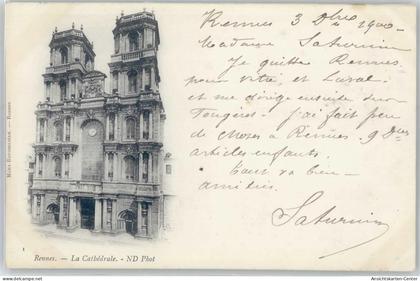 Rennes 3 Dbre 1900
Madame Saturnin
Je quitte Rennes
pour Vitré et Laval
et me dirige ensuite sur
Fougères - J'ai fait peu
de choses à Rennes. 9 Dres
articles enfants.
tout va bien
amitiés
Saturnin
Maex Rennes
1
Rennes. — La Cathédrale. - ND Phot
www.Ansichtskarten-Center.de